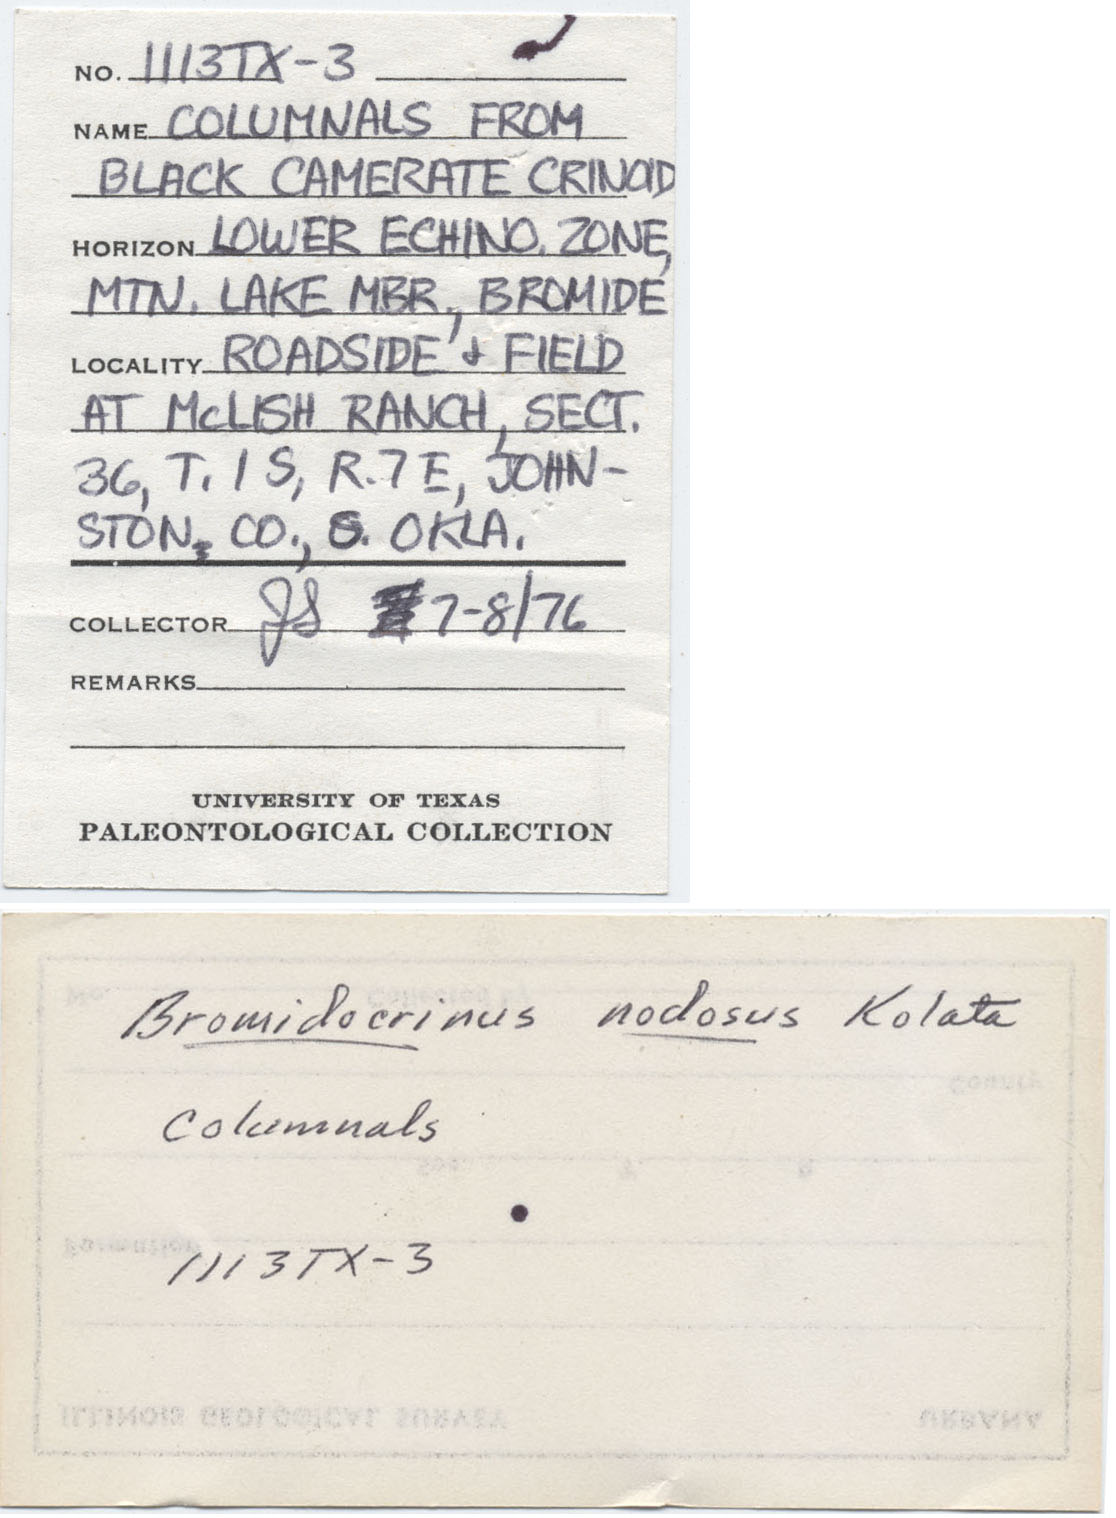 NO. 1113TX-3
NAME COLUMNALS FROM
BLACK CAMERATE CRINOID
HORIZON LOWER ECHINO. ZONE,
MTN. LAKE MBR., BROMIDE
LOCALITY ROADSIDE & FIELD
AT McLISH RANCH, SECT.
36, T. 1 S, R. 7 E, JOHN-
STON, CO., S. OKLA.
COLLECTOR JS 7-8/76
REMARKS
UNIVERSITY OF TEXAS
PALEONTOLOGICAL COLLECTION
No. Collected by
Bromidocrinus nodosus Kolata
County
Columnals
Sec. T. R.
Formation
1113TX-3
ILLINOIS GEOLOGICAL SURVEY URBANA